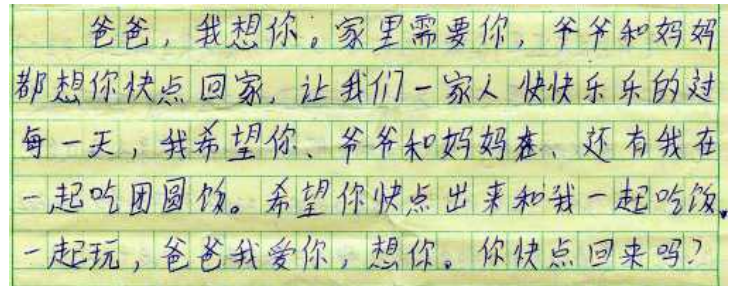 爸爸，我想你。家里需要你，爷爷和妈妈
都想你快点回家，让我们一家人快快乐乐的过
每一天，我希望你、爷爷和妈妈在、还有我在
一起吃团圆饭。希望你快点出来和我一起吃饭。
一起玩，爸爸我爱你，想你。你快点回来吗？